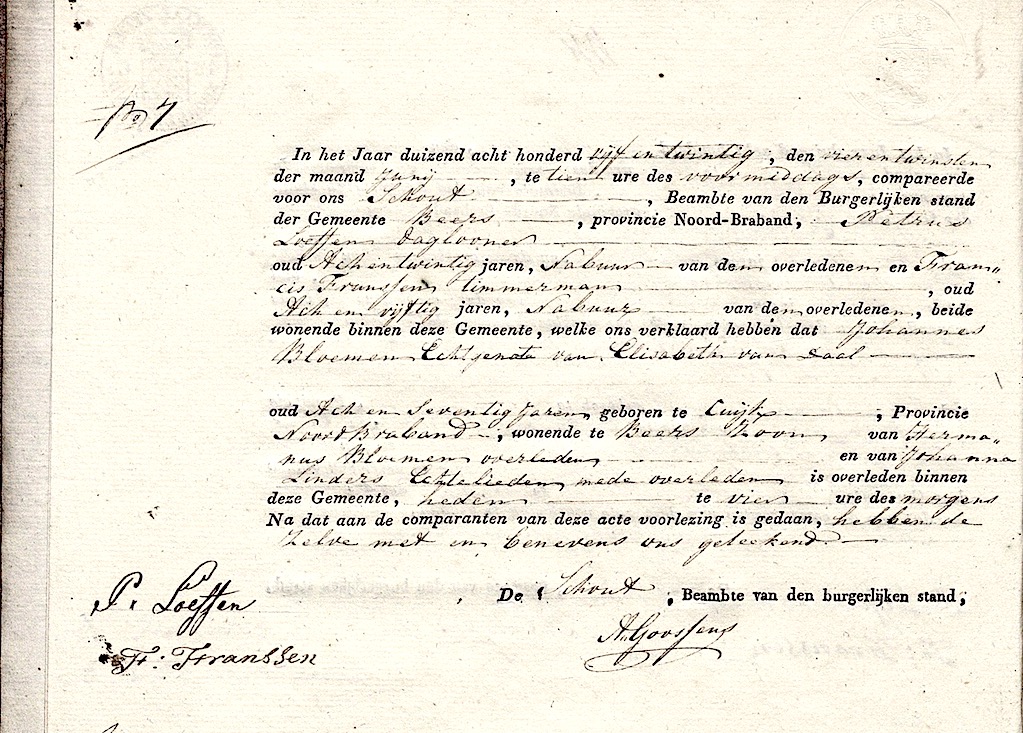 No 7
In het Jaar duizend acht honderd vijf en twintig, den vierentwinsten
der maand Junij, te tien ure des voormiddags, compareerde
voor ons Schout, Beambte van den Burgerlijken stand
der Gemeente Beers, provincie Noord-Braband, Petrus
Loeffen daglooner
oud Achentwintig jaren, Nabuur van den overledenen en Fran„
cis Franssen timmerman, oud
Ach en vijftig jaren, Nabuur van den overledenen, beide
wonende binnen deze Gemeente, welke ons verklaard hebben dat Johannes
Bloemen Echtgenote van Elisabeth van Daal
oud Ach en Seventig Jaren, geboren te Cuijk, Provincie
Noord Braband, wonende te Beers Zoon van Herma„
nus Bloemen overleden en van Johanna
Linders Echtelieden mede overleden is overleden binnen
deze Gemeente, heden te vier ure des morgens
Na dat aan de comparanten van deze acte voorlezing is gedaan, hebben de
Zelve met en benevens ons geteekend.
P. Loeffen
De Schout, Beambte van den burgerlijken stand,
A. Goossens
Fr: Franssen